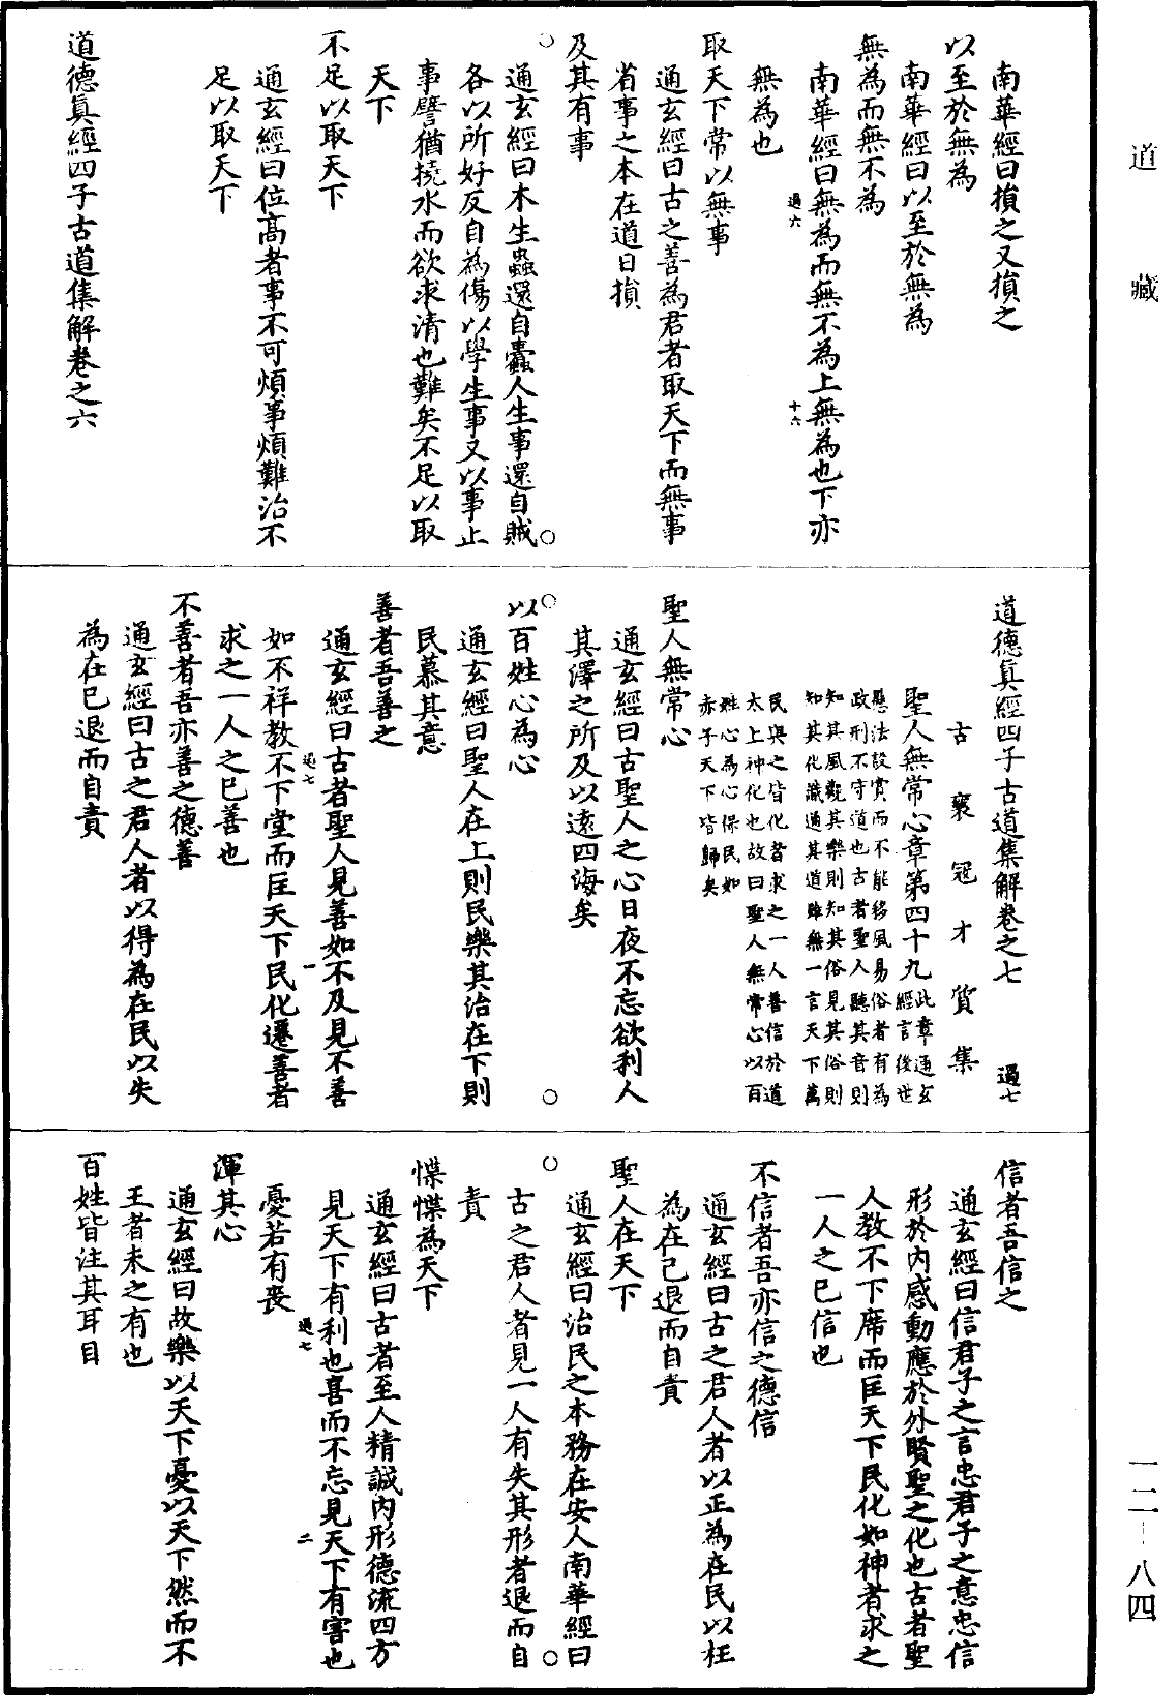 道藏
南華經曰損之又損之
以至於無為
南華經曰以至於無為
無為而無不為
南華經曰無為而無不為上無為也下亦
過六
十六
無為也
取天下常以無事
通玄經曰古之善為君者取天下而無事
省事之本在道日損
及其有事
通玄經曰木生蟲還自蠹人生事還自賊
各以所好反自為傷以學生事又以事止
事譬猶撓水而欲求清也難矣不足以取
天下
不足以取天下
通玄經曰位高者事不可煩事煩難治不
足以取天下
道德真經四子古道集解卷之六
道德真經四子古道集解卷之七 過七
古襄冠才質集
聖人無常心章第四十九此章通玄
經言後世
懸法設賞而不能移風易俗者有為
政刑不守道也古者聖人聽其音則
知其風觀其樂則知其俗見其俗則
知其化識過其道雖無一言天下萬
民與之皆化者求之一人善信於道
太上神化也故曰聖人無常心以百
姓心為心保民如
赤子天下皆歸矣
聖人無常心
通玄經曰古聖人之心日夜不忘欲利人
其澤之所及以遠四海矣
以百姓心為心
通玄經曰聖人在上則民樂其治在下則
民慕其意
善者吾善之
通玄經曰古者聖人見善如不及見不善
過七
一
如不祥教不下堂而匡天下民化遷善者
求之一人之已善也
不善者吾亦善之德善
通玄經曰古之君人者以得為在民以失
為在已退而自責
信者吾信之
通玄經曰信君子之言忠君子之意忠信
形於內感動應於外賢聖之化也古者聖
人教不下席而匡天下民化如神者求之
一人之已信也
不信者吾亦信之德信
通玄經曰古之君人者以正為在民以枉
為在己退而自責
聖人在天下
通玄經曰治民之本務在安人南華經曰
古之君人者見一人有失其形者退而自
責
惵惵為天下
通玄經曰古者至人精誠內形德流四方
見天下有利也喜而不忘見天下有害也
過七
二
憂若有喪
渾其心
通玄經曰故樂以天下憂以天下然而不
王者未之有也
百姓皆注其耳目
一二—八四